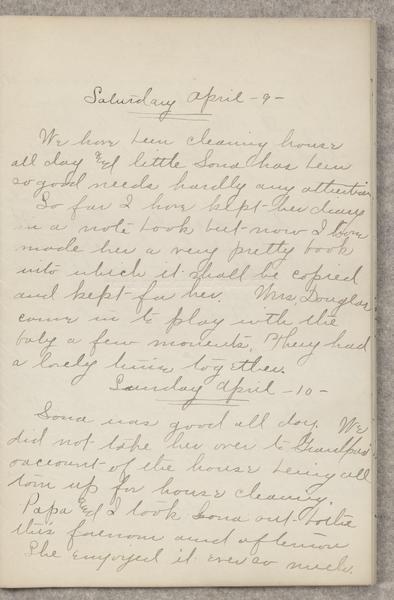 Saturday April -9-
We have been cleaning house
all day and little Sona has been
so good needs hardly any attention
So far I have kept her diary
in a note book but now I have
made her a very pretty book
into which it shall be copied
and kept for her. Mrs. Douglas
came in to play with the
baby a few moments. They had
a lovely time together.
Sunday April -10-
Sona was good all day. We
did not take her over to Grandpas
account of the house being all
torn up for house cleaning.
Papa and I took Sona out
this forenoon and afternoon
She enjoyed it ever so much.